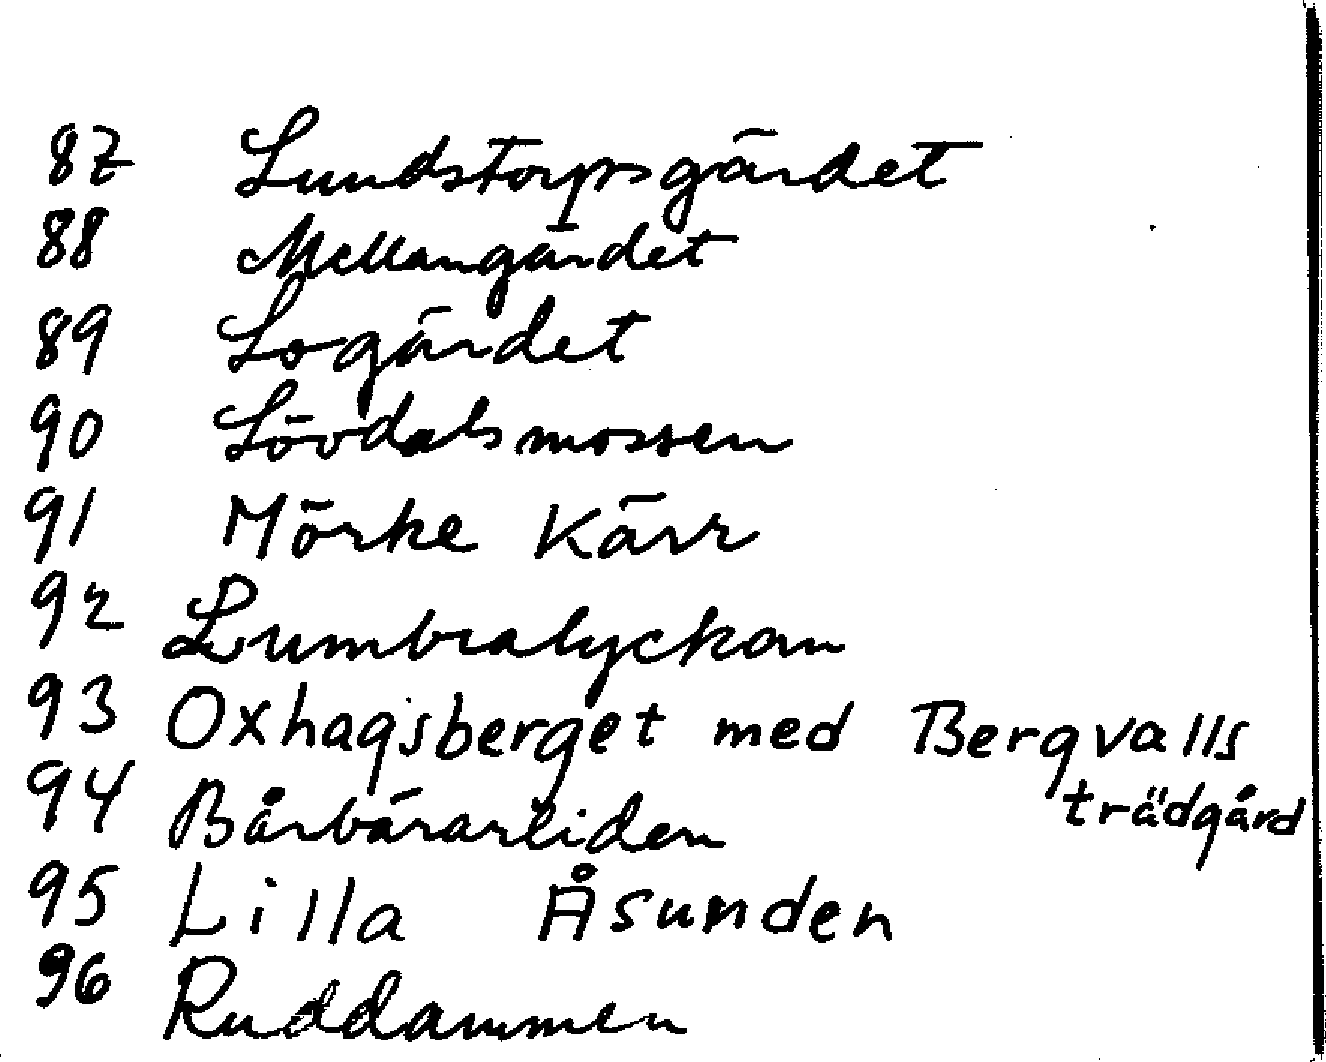 87 Lundstorpsgärdet
88 Mellangärdet
89 Logärdet
90 Lövdalsmossen
91 Mörke Kärr
92 Lumbralyckan
93 Oxhagsberget med Bergvalls
trädgård
94 Bårbärarliden
95 Lilla Åsunden
96 Ruddammen